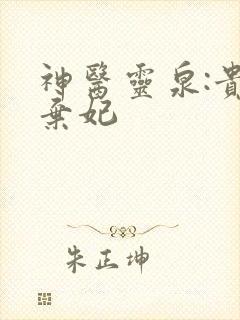 神醫靈泉:貴
棄妃
朱正坤